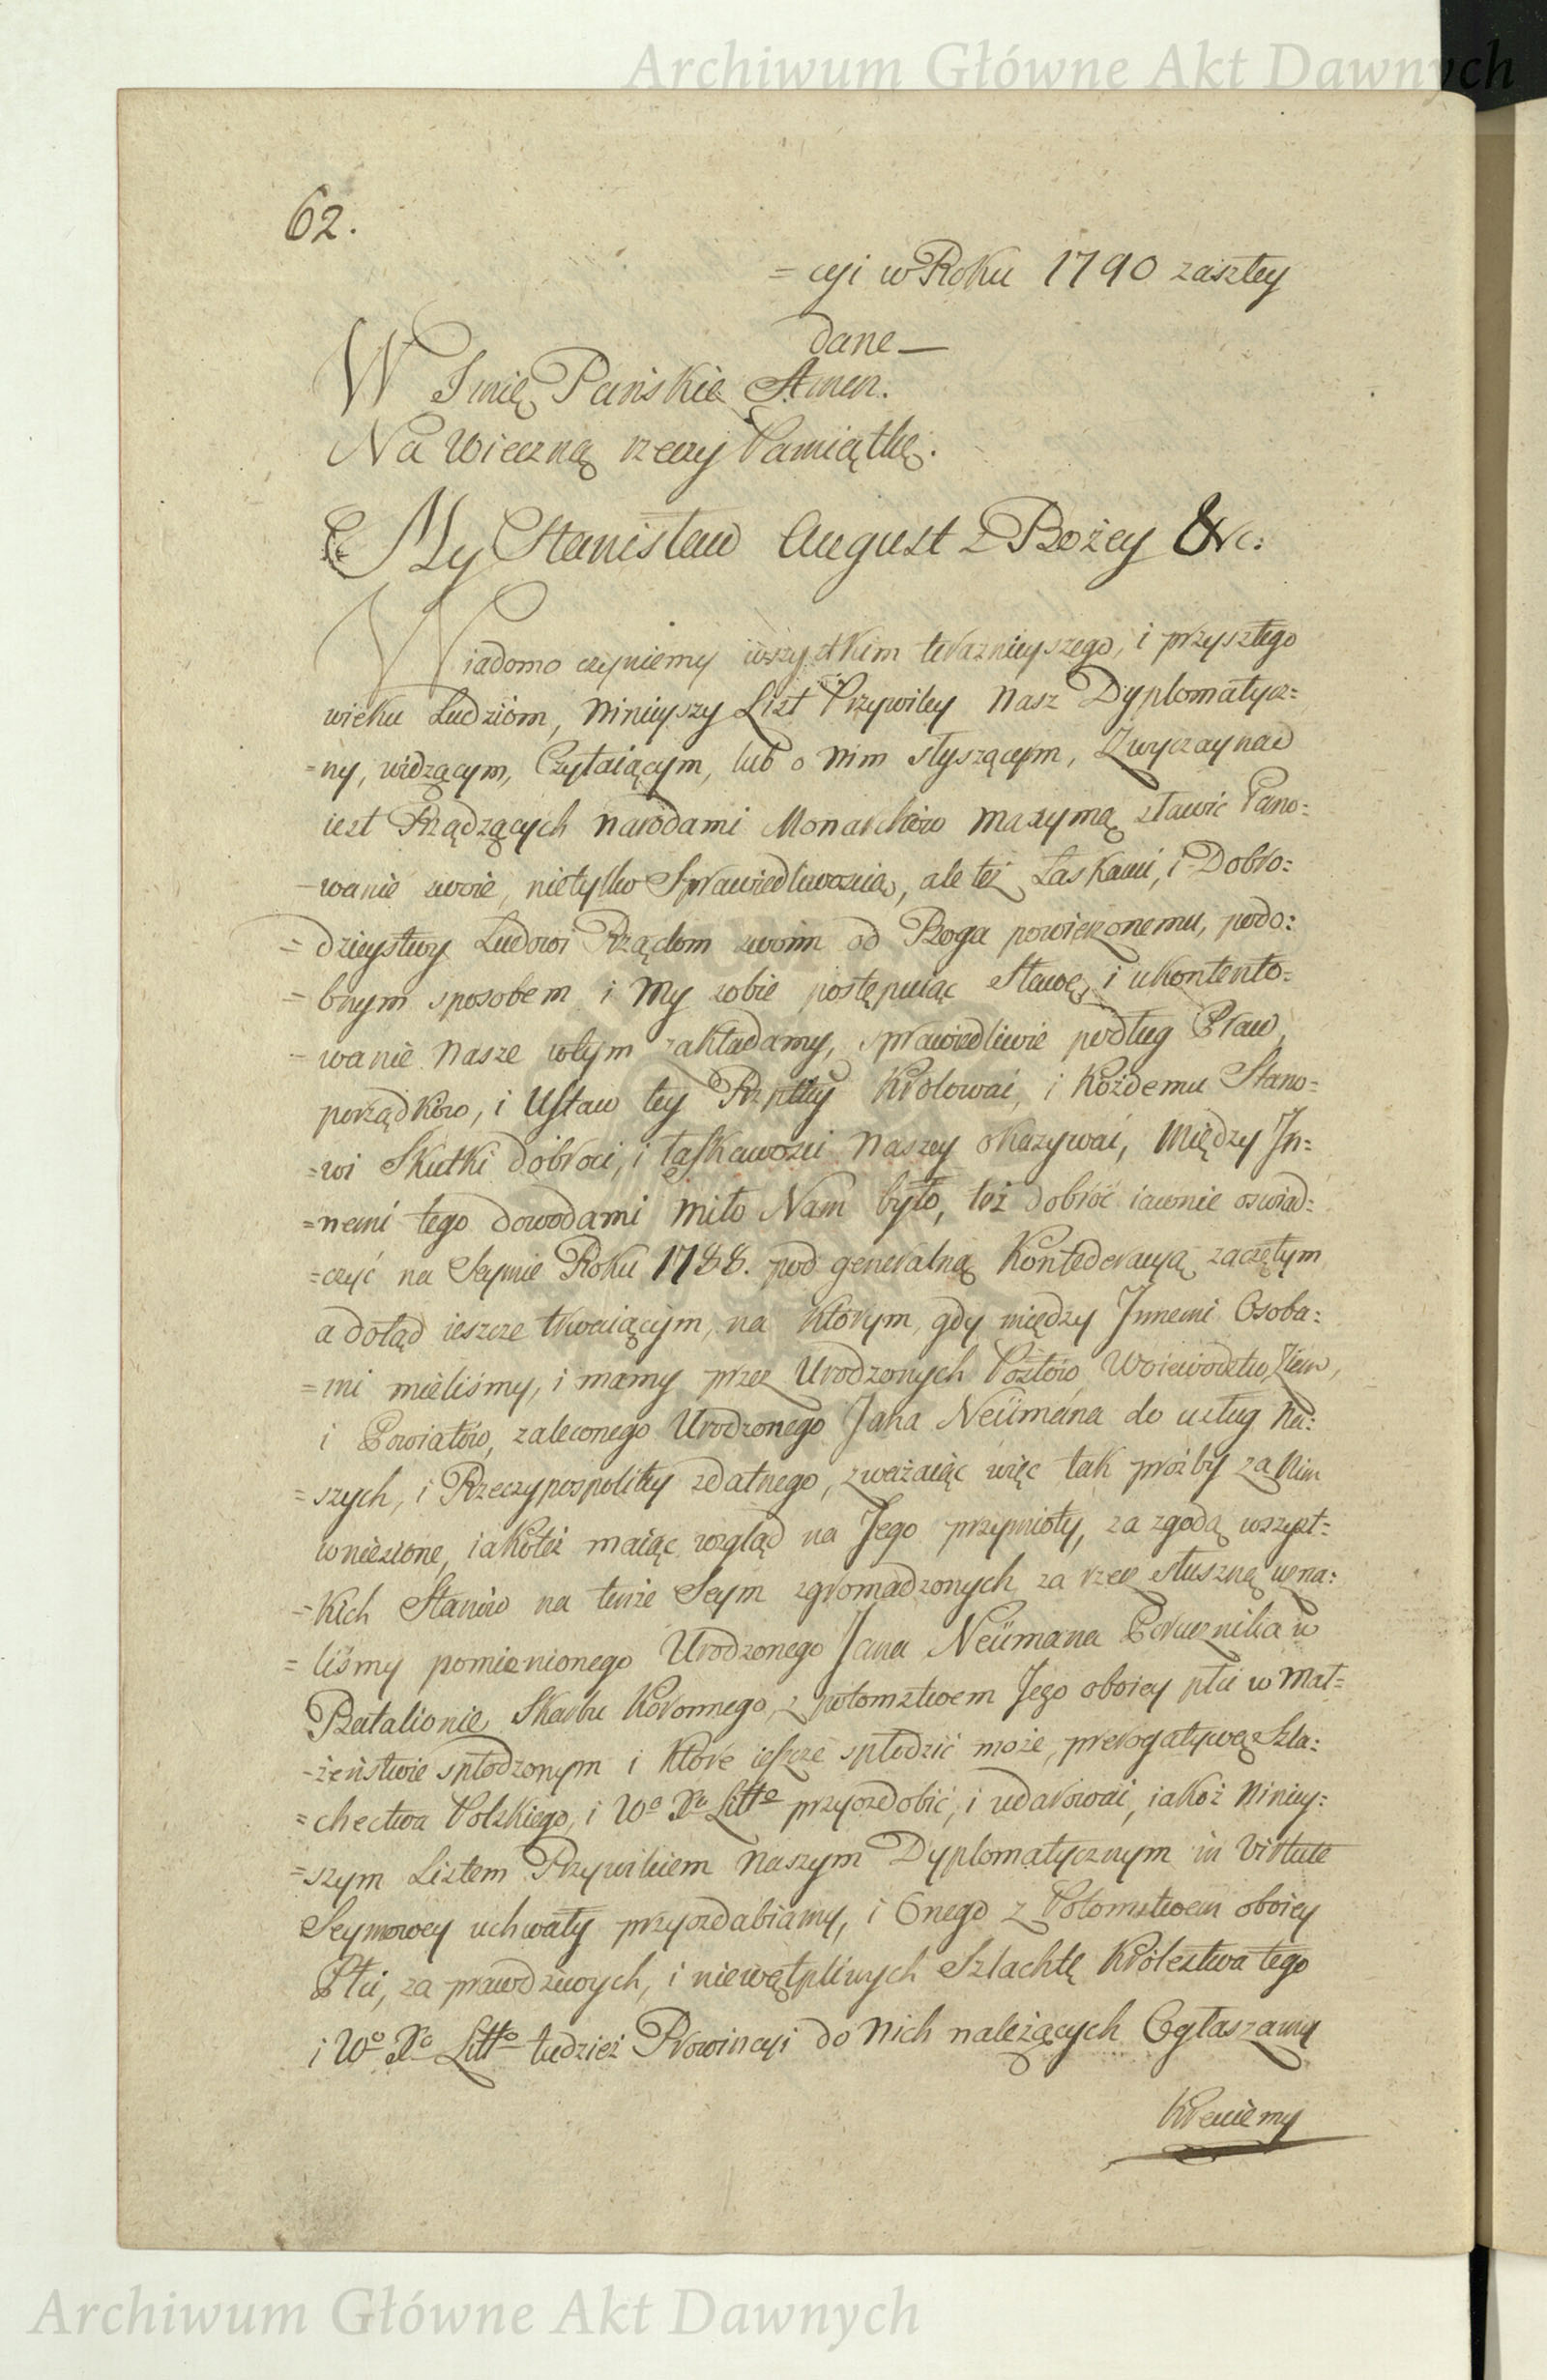 Archiwum Główne Akt Dawnych
62.
= cyi w Roku 1790 zaszłey
dane —
W Imię Pańskie Amen.
Na Wieczną rzeczy Pamiątkę.
My Stanisław August z Bożey &c:
Wiadomo czyniemy wszystkim teraznieyszego, i przyszłego
wieku Ludziom, ninieyszy List Przywiley Nasz Dyplomatycz=
=ny, widzącym, Czytaiącym, lub o nim słyszącym, Zwyczayna
iest Rządzących narodami Monarchów maxymą stawić Pano:
=wanie swoie, nietylko Sprawiedliwością, ale też Łaskami, i Dobro:
= dzieystwy Ludowi Rządom swoim od Boga powierzonemu, podo:
= bnym sposobem i My sobie postępuiąc Sławę, i ukontento:
= wanie nasze wtym zakładamy, sprawiedliwie podług Praw,
porządków, i Ustaw tey Rzptey Królować, i Każdemu Stano=
=wi Skutki dobroci, i łaskawości Naszey okazywać, Między In=
=nemi tego dowodami miło Nam było, też dobróć iawnie oświad:
=czyć na Seymie Roku 1788. pod generalną Konfederacyą zaczętym
a dotąd ieszcze trwaiącym, na którym, gdy między Innemi Osoba:
= mi mieliśmy, i mamy przez Urodzonych Posłów Woiewództw, Ziem,
i Powiatów, zaleconego Urodzonego Jana Neümana do usług Na:
= szych, i Rzeczypospolitey zdatnego, zważaiąc więc tak proźby za Nim
wniesione, iakoteż maiąc wzgląd na Jego przymioty, za zgodą wszyst=
=kich Stanów na tenże Seym zgromadzonych za rzecz słuszną uzna:
= liśmy pomienionego Urodzonego Jana Neümana Porucznika w
Batalionie Skarbu Koronnego, z potomstwem Jego oboiey płci w Mał=
=żeństwie spłodzonym i które ieszcze spłodzić może, prerogatywą Szla:
= chectwa Polskiego, i Wo Xa Litto przyozdobić, i udarować, iakoż Niniey:
=szym Listem Przywileiem Naszym Dyplomatycznym in Virtute
Seymowey uchwały przyozdabiamy, i Onego z Potomstwem oboiey
Płci, za prawdziwych, i niewątpliwych Szlachtę Królestwa tego
i Wo Xa Litto tudzież Prowincyi do Nich należących Ogłaszamy
Kreuiemy
Archiwum Główne Akt Dawnych